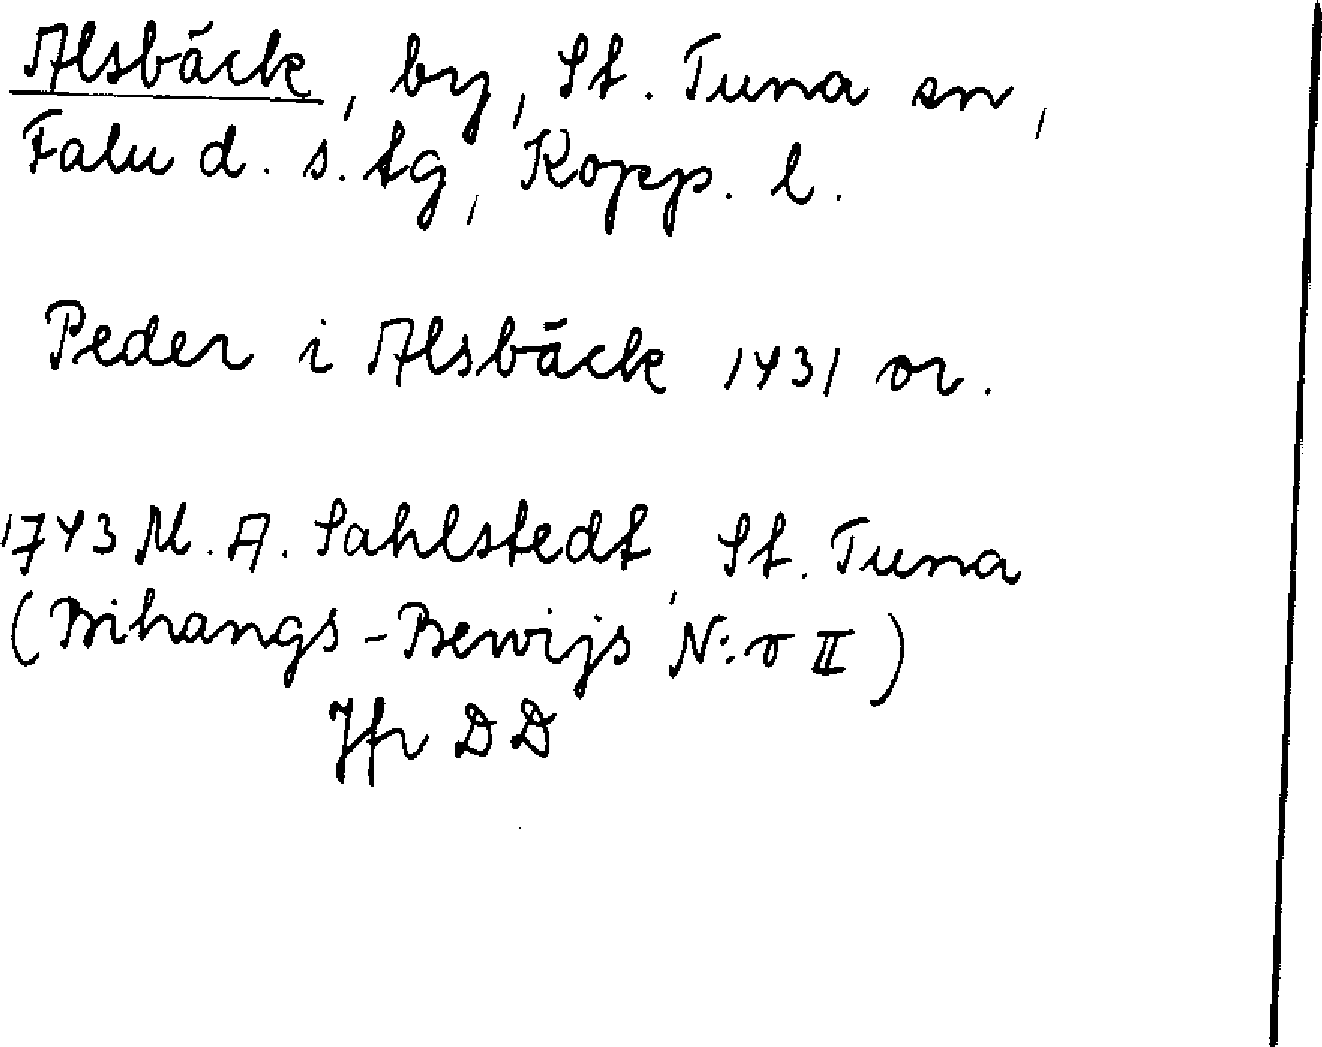 Alsbäck, by, St. Tuna sn,
Falu d. s. tg, Kopp. l.
Peder i Alsbäck 1431 or.
1743 M. A. Sahlstedt, St. Tuna
(Bihangs-Bewijs N:o II)
Jfr DD